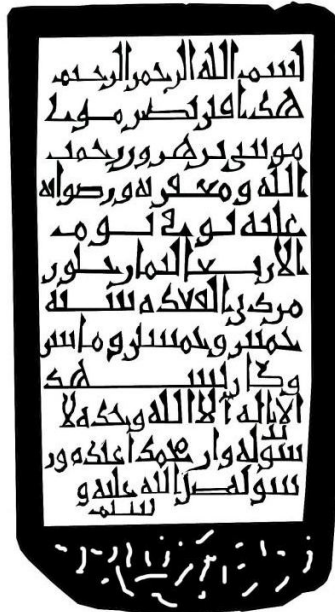 بسم الله الرحمن الرحيم
هذا قبر نصر مولى
موسى بن هرون رحمت
الله ومغفرته ورضوانه
عليه توفي يوم
الاربعا لثمان خلون
من ذي القعدة سنة
خمس وخمسين وماتين
وكان يشهد
الا اله الا الله وحده لا
شريك له وان محمدا عبده ور
سوله صلى الله عليه و
سلم